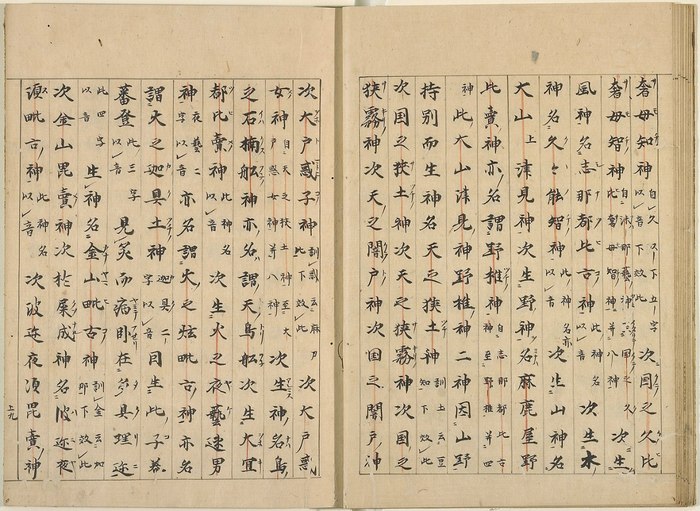 奢母知神自久以下五字以音下效此次国之久比
奢母智神自沫那藝神至国之久比奢母智神并八神次生
風神名志那都比古神此神名以音次生木
神名久々能智神此神名以音次生山神名
大山上津見神次生野神名麻鹿屋野
比賣神亦名謂野椎神自志那都比古神至野椎并四
神此大山津見神野椎神二神因山野
持別而生神名天之狭土神訓土云豆知下效此
次国之狭土神次天之狭霧神次国之
狭霧神次天之闇戸神次国之闇戸神
次大戸惑子神訓惑云麻刀比下效此次大戸惑
女神自天之狭土神至大戸惑女神并八神次生神名鳥
之石楠舩神亦名謂天鳥舩次生大宜
都比賣神此神名以音次生火之夜藝速男
神夜藝二字以音亦名謂火之炫毗古神亦名
謂火之迦具土神迦具二字以音因生此子美
蕃登此三字以音見炙而病臥在多具理迩
此四字以音生神名金山毗古神訓金云加那下效此
次金山毘賣神次於屎成神名波迩夜
須毗古神此神名以音次波迩夜須毘賣神
上九